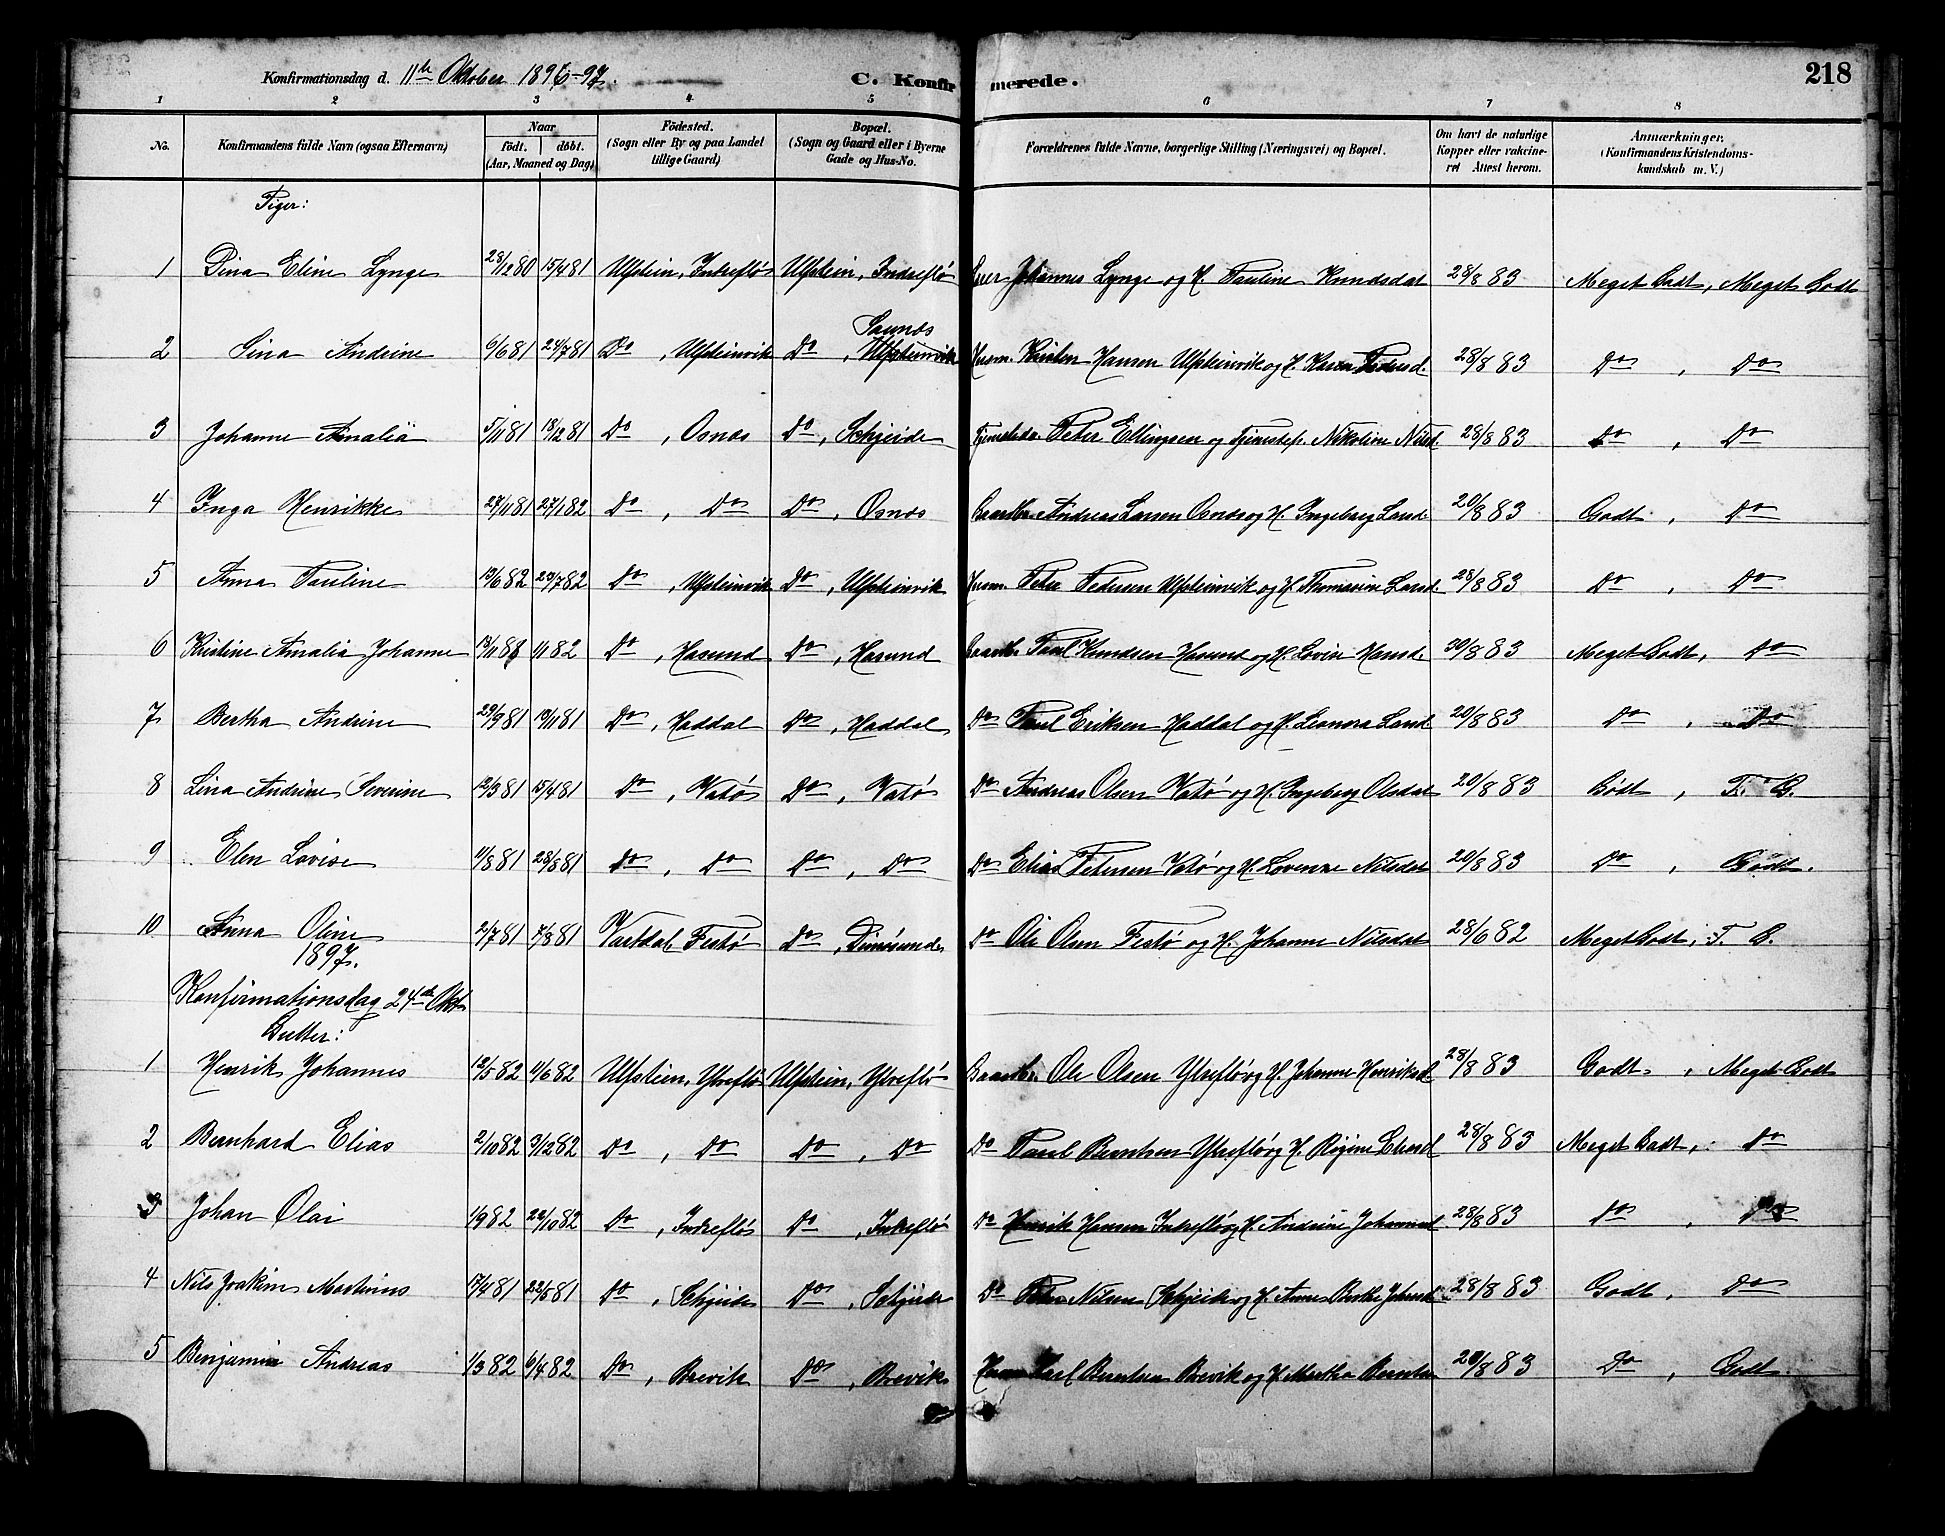 Konfirmationsdag d. 11te Oktober 1896-97. C. Konfirmerede. 218
1 2 3 4 5 6 7 8
No. Konfirmandens fulde Navn (ogsaa Efternavn) Naar født. døbt. (Aar, Maaned og Dag) Födested. (Sogn eller By og paa Landet tillige Gaard) Bopæl. (Sogn og Gaard eller i Byerne Gade og Hus-No. Forældrenes fulde Navne, borgerlige Stilling (Næringsvei) og Bopæl. Om havt de naturlige Kopper eller vakcineret Attest herom. Anmærkninger. (Konfirmandens Kristendomskundskab m. V.)
Piger:
1 Dina Eline Lynge 28/12 80 15/4 81 Ulfstein, Indreflø Ulfstein, Indreflø Johannes Lynge og H. Pauline Knudsdat 28/8 83 Meget Godt, Meget Godt
2 Sina Andrine 6/6 81 24/7 81 Do, Ulfsteinvik Do, Saunes Ulfsteinvik Husm. Kristen Hansen Ulfsteinvik og H. Karen Pedersd. 28/8 83 Do, Do
3 Johanne Amalia 5/11 81 18/12 81 Do, Osnes Do, Schjeide Peter Ellingsen og Nikoline Nilsd. 28/8 83 Do, Do
4 Inga Henrikke 27/11 81 27/1 82 Do, Do Do, Osnes Gaardbr. Andreas Larsen Osnes og H. Ingeborg Larsd. 20/8 83 Godt, Do
5 Anna Pauline 13/6 82 20/7 82 Do, Ulfsteinvik Do, Ulfsteinvik Husm. Peter Pedersen Ulfsteinvik og H. Thomasine Larsd. 28/8 83 Do, Do
6 Kristine Amalia Johanne 1/1 82 Do, Hasund Do, Hasund Gaardbr. Paul Knudsen Hasund og H. Lovise Hansd. 30/8 83 Meget Godt, Do
7 Bertha Andrine 29/9 81 13/11 81 Do, Haddal Do, Haddal Do Paul Eriksen Haddal og H. Leonora Larsd. 20/8 83 Do, Do
8 Lina Andrine Severine 12/3 81 15/4 81 Do, Vatø Do, Vatø Do Andreas Olsen Vatø og H. Ingeborg Olsdat 20/8 83 Godt, T. G.
9 Elen Lovise 4/8 81 28/8 81 Do, Do Do, Do Do Elias Petersen Vatø og H. Lovense Nilsdat 20/8 83 Do, Godt.
10 Anna Oline 2/7 81 7/8 81 Vartdal Festø Do, Dimøsunde Do Ole Olsen Festø og H. Johanne Nilsdat 28/6 82 Meget Godt, T. G.
1897.
Konfirmationsdag 24de Okt.
Gutter:
1 Henrik Johannes 12/5 82 4/6 82 Ulfstein, Ytreflø Ulfstein, Ytreflø Gaardbr. Ole Olsen Ytreflø og H. Johanne Henriksd. 28/8 83 Godt, Meget Godt
2 Bernhard Elias 2/10 82 3/12 82 Do, Do Do, Do Do Paul Berntsen Ytreflø og H. Regine 28/8 83 Meget Godt, Do
3 Johan Olai 1/9 82 22/10 82 Do, Indreflø Do, Indreflø Do Henrik Hansen Indreflø og H. Andrine Johannesd 28/8 83 Do, Do
4 Nils Joakim Martinus 17/4 81 22/5 81 Do, Schjeide Do, Schjeide Do Peter Nilsen Schjeide og H. Anne Berthe 28/8 83 Godt, Do
5 Benjamin Andreas 1/3 82 6/4 82 Do, Brevik Do, Brevik Husm. Karl Berntsen Brevik og H. Martha 20/8 83 Do, Godt.